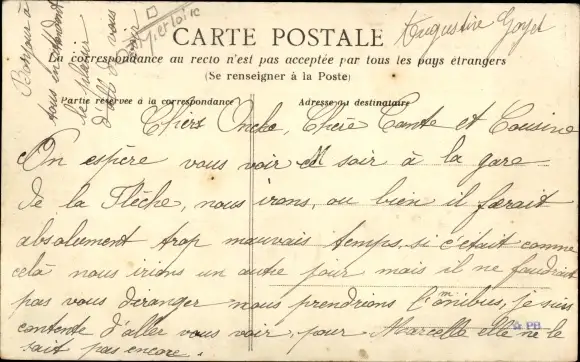 Augustine Goyet
CARTE POSTALE
La correspondance au recto n'est pas acceptée par tous les pays étrangers
(Se renseigner à la Poste)
Partie réservée à la correspondance
Adresse du destinataire
Chers Oncle, Chère Tante et Cousine
On espère vous voir ce soir à la gare
de la Flèche, nous irons, ou bien il faerait
absolument trop mauvais temps. si c'était comme
celà nous irions un autre jour mais il ne faudrait
pas vous déranger nous prendrions l'omnibus, je suis
contente d'aller vous voir, pour Marcelle elle ne le
sait pas encore.
Bonjour à
tous en attendant
le plaisir
d'
vous
voir
PB